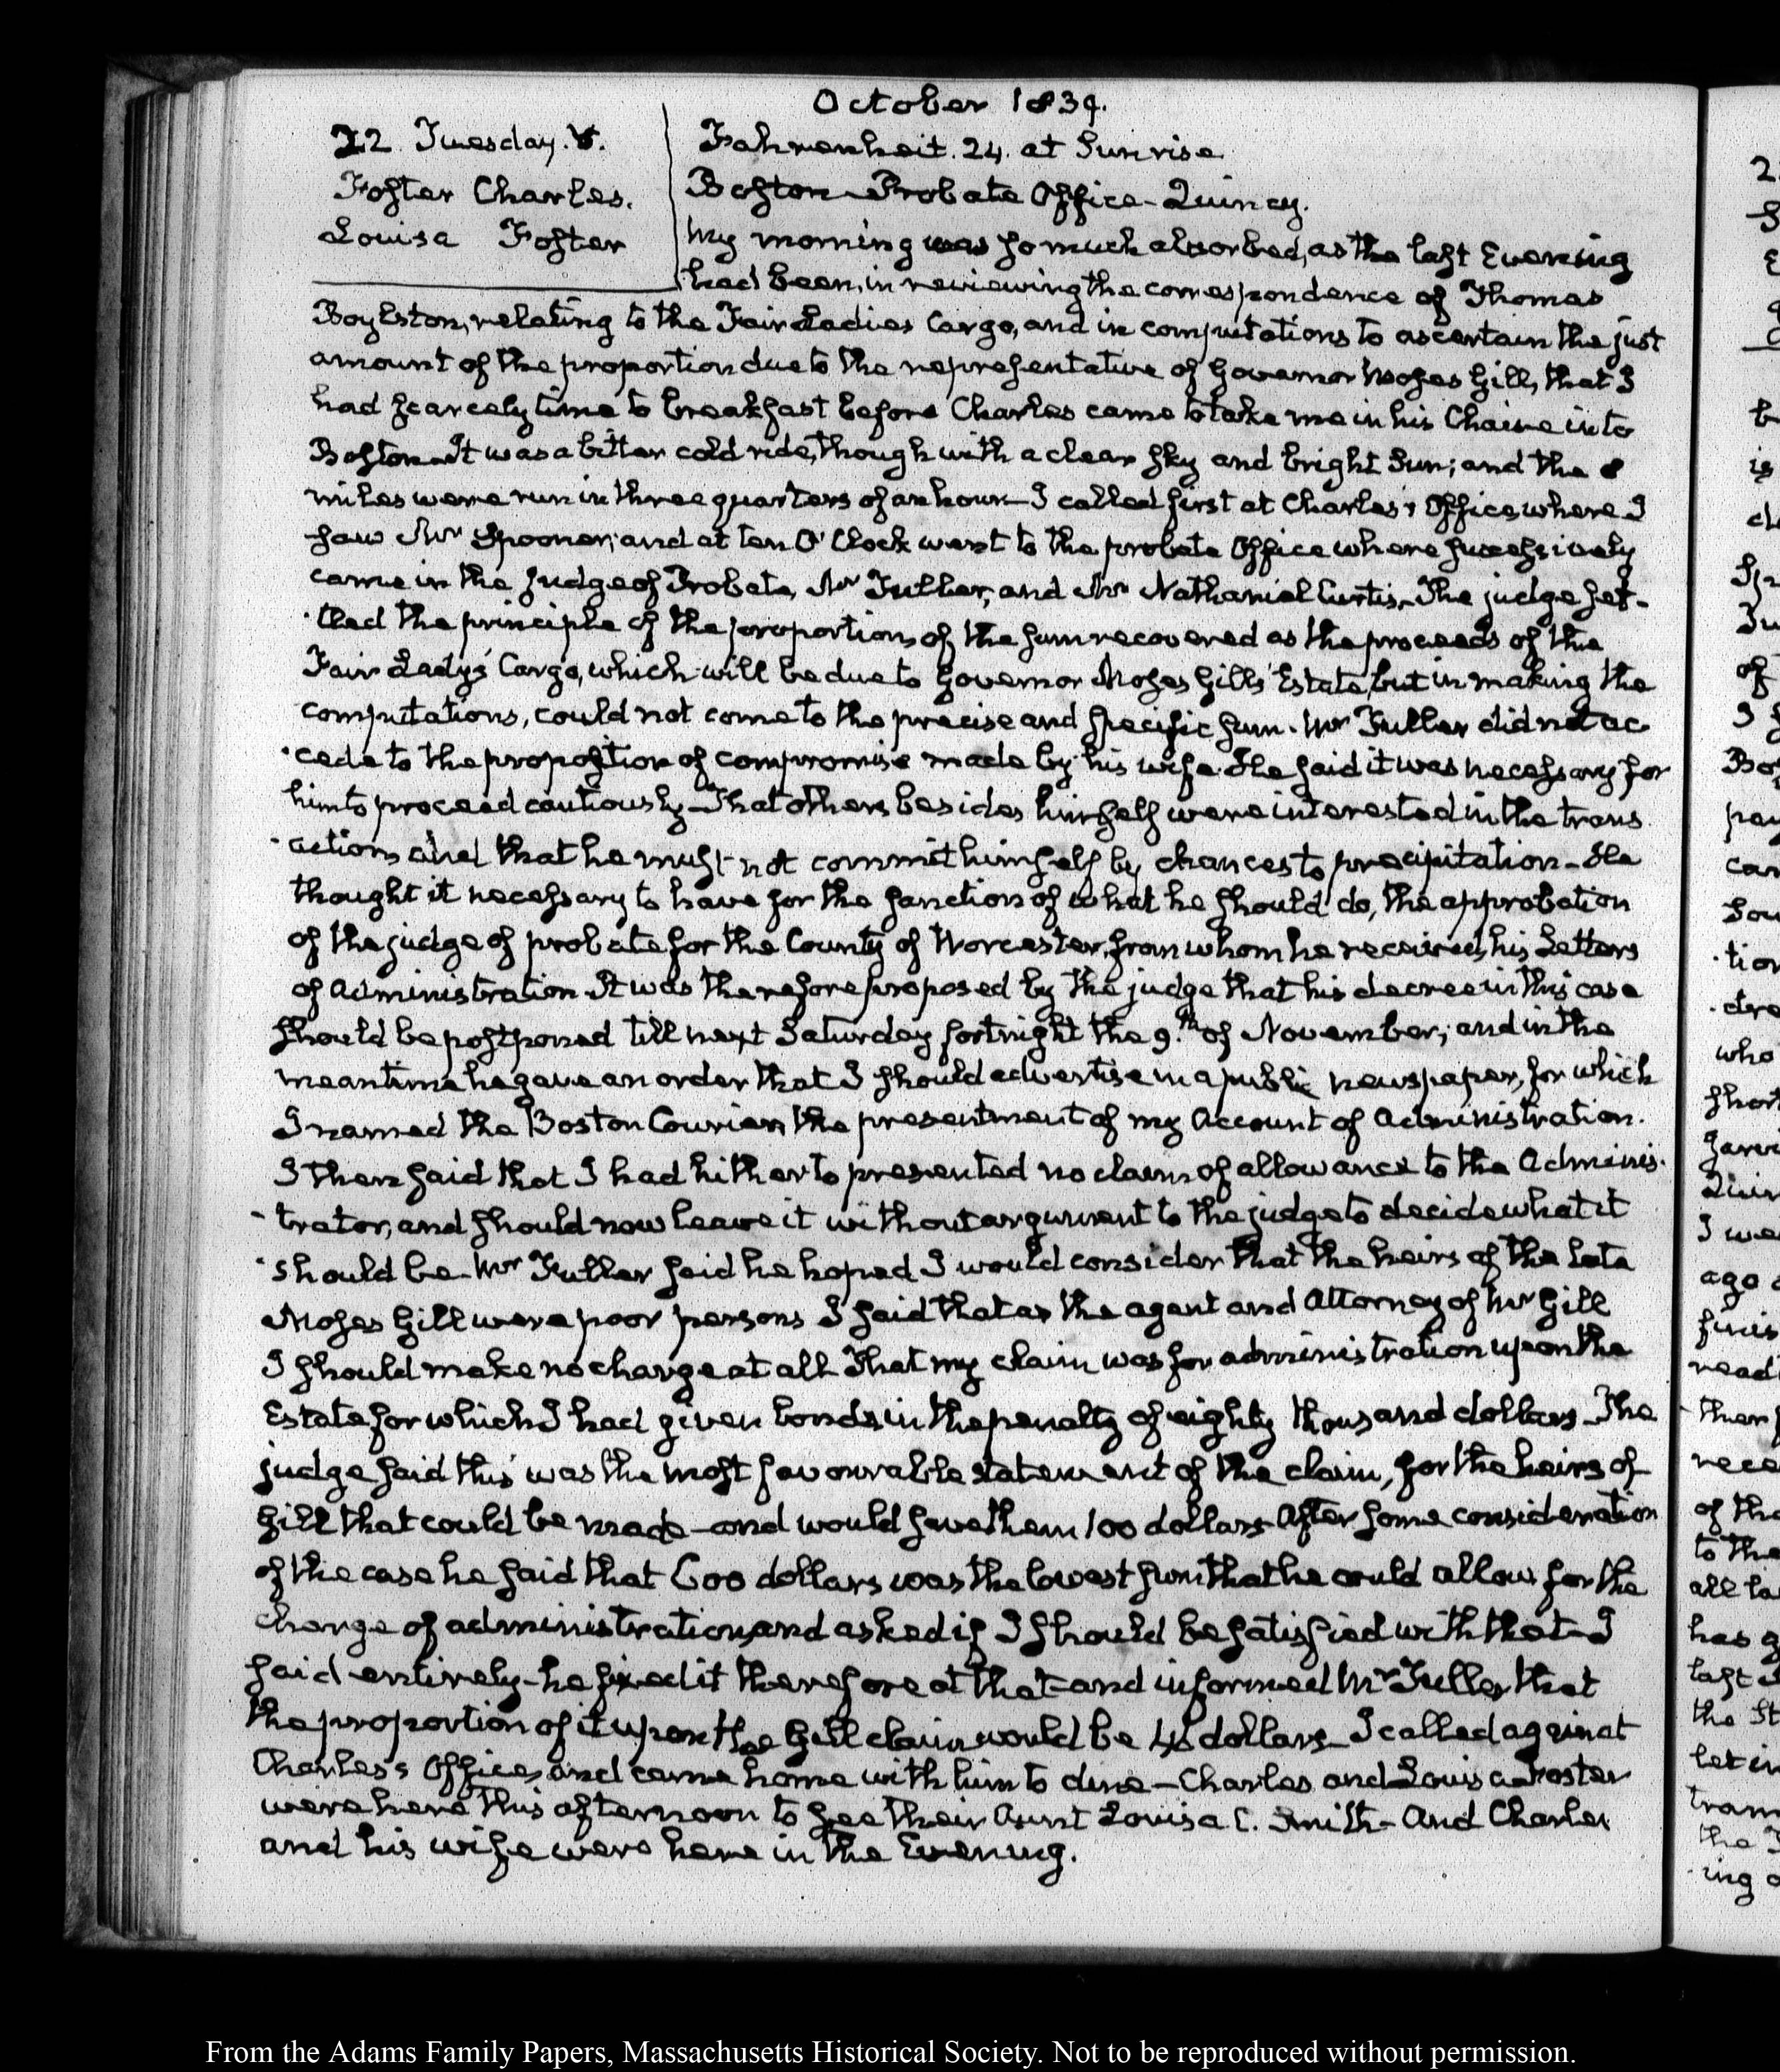 October 1839.
22. Tuesday. V.
Foster Charles.
Louisa Foster
Fahrenheit. 24. at Sunrise
Boston Probate Office - Quincy.
My morning was so much absorbed, as the last Evening
had been, in reviewing the correspondence of Thomas
Boylston, relating to the Fair Ladies Cargo, and in computations to ascertain the just
amount of the proportion due to the representative of Governor Moses Gill, that I
had scarcely time to breakfast before Charles came to take me in his Chaise into
Boston. It was a bitter cold ride, though with a clear sky and bright Sun; and the 8
miles were run in three quarters of an hour - I called first at Charles's Office where I
saw Mr Spooner; and at ten O'Clock went to the probate Office where successively
came in the Judge of Probate, Mr Fuller, and Mr Nathaniel Curtis. The judge set-
tled the principle of the proportions of the sum recovered as the proceeds of the
Fair Lady's Cargo, which will be due to Governor Moses Gill's Estate, but in making the
computations, could not come to the precise and specific sum. Mr Fuller did not ac
cede to the proposition of compromise made by his wife. He said it was necessary for
him to proceed cautiously - That others besides himself were interested in the trans
actions and that he must not commit himself by chances to precipitation - He
thought it necessary to have for the sanction of what he should do, the approbation
of the judge of probate for the County of Worcester, from whom he received his Letters
of Administration. It was therefore proposed by the judge that his decree in this case
should be postponed till next Saturday fortnight the 9.th of November; and in the
meantime he gave an order that I should advertise in a public newspaper, for which
I named the Boston Courier, the presentment of my Account of Administration.
I then said that I had hitherto presented no claim of allowance to the Adminis-
trator, and should now leave it without argument to the judge to decide what it
should be. Mr Fuller said he hoped I would consider that the heirs of the late
Moses Gill were poor persons I said that as the agent and Attorney of Mr Gill
I should make no charge at all That my claim was for administration upon the
Estate for which I had given bonds in the penalty of eighty thousand dollars. The
judge said this was the most favourable statement of the claim, for the heirs of
Gill that could be made - and would save them 100 dollars. After some consideration
of the case he said that 600 dollars was the lowest sum that he could allow for the
charge of administration, and asked if I should be satisfied with that - I
said entirely - he fixed it therefore at that - and informed Mr Fuller that
the proportion of it upon the Gill claim would be dollars - I called again at
Charles's Office, and came home with him to dine - Charles and Louisa Foster
were here this afternoon to see their Aunt Louisa C. Smith - And Charles
and his wife were here in the Evening.
From the Adams Family Papers, Massachusetts Historical Society. Not to be reproduced without permission.